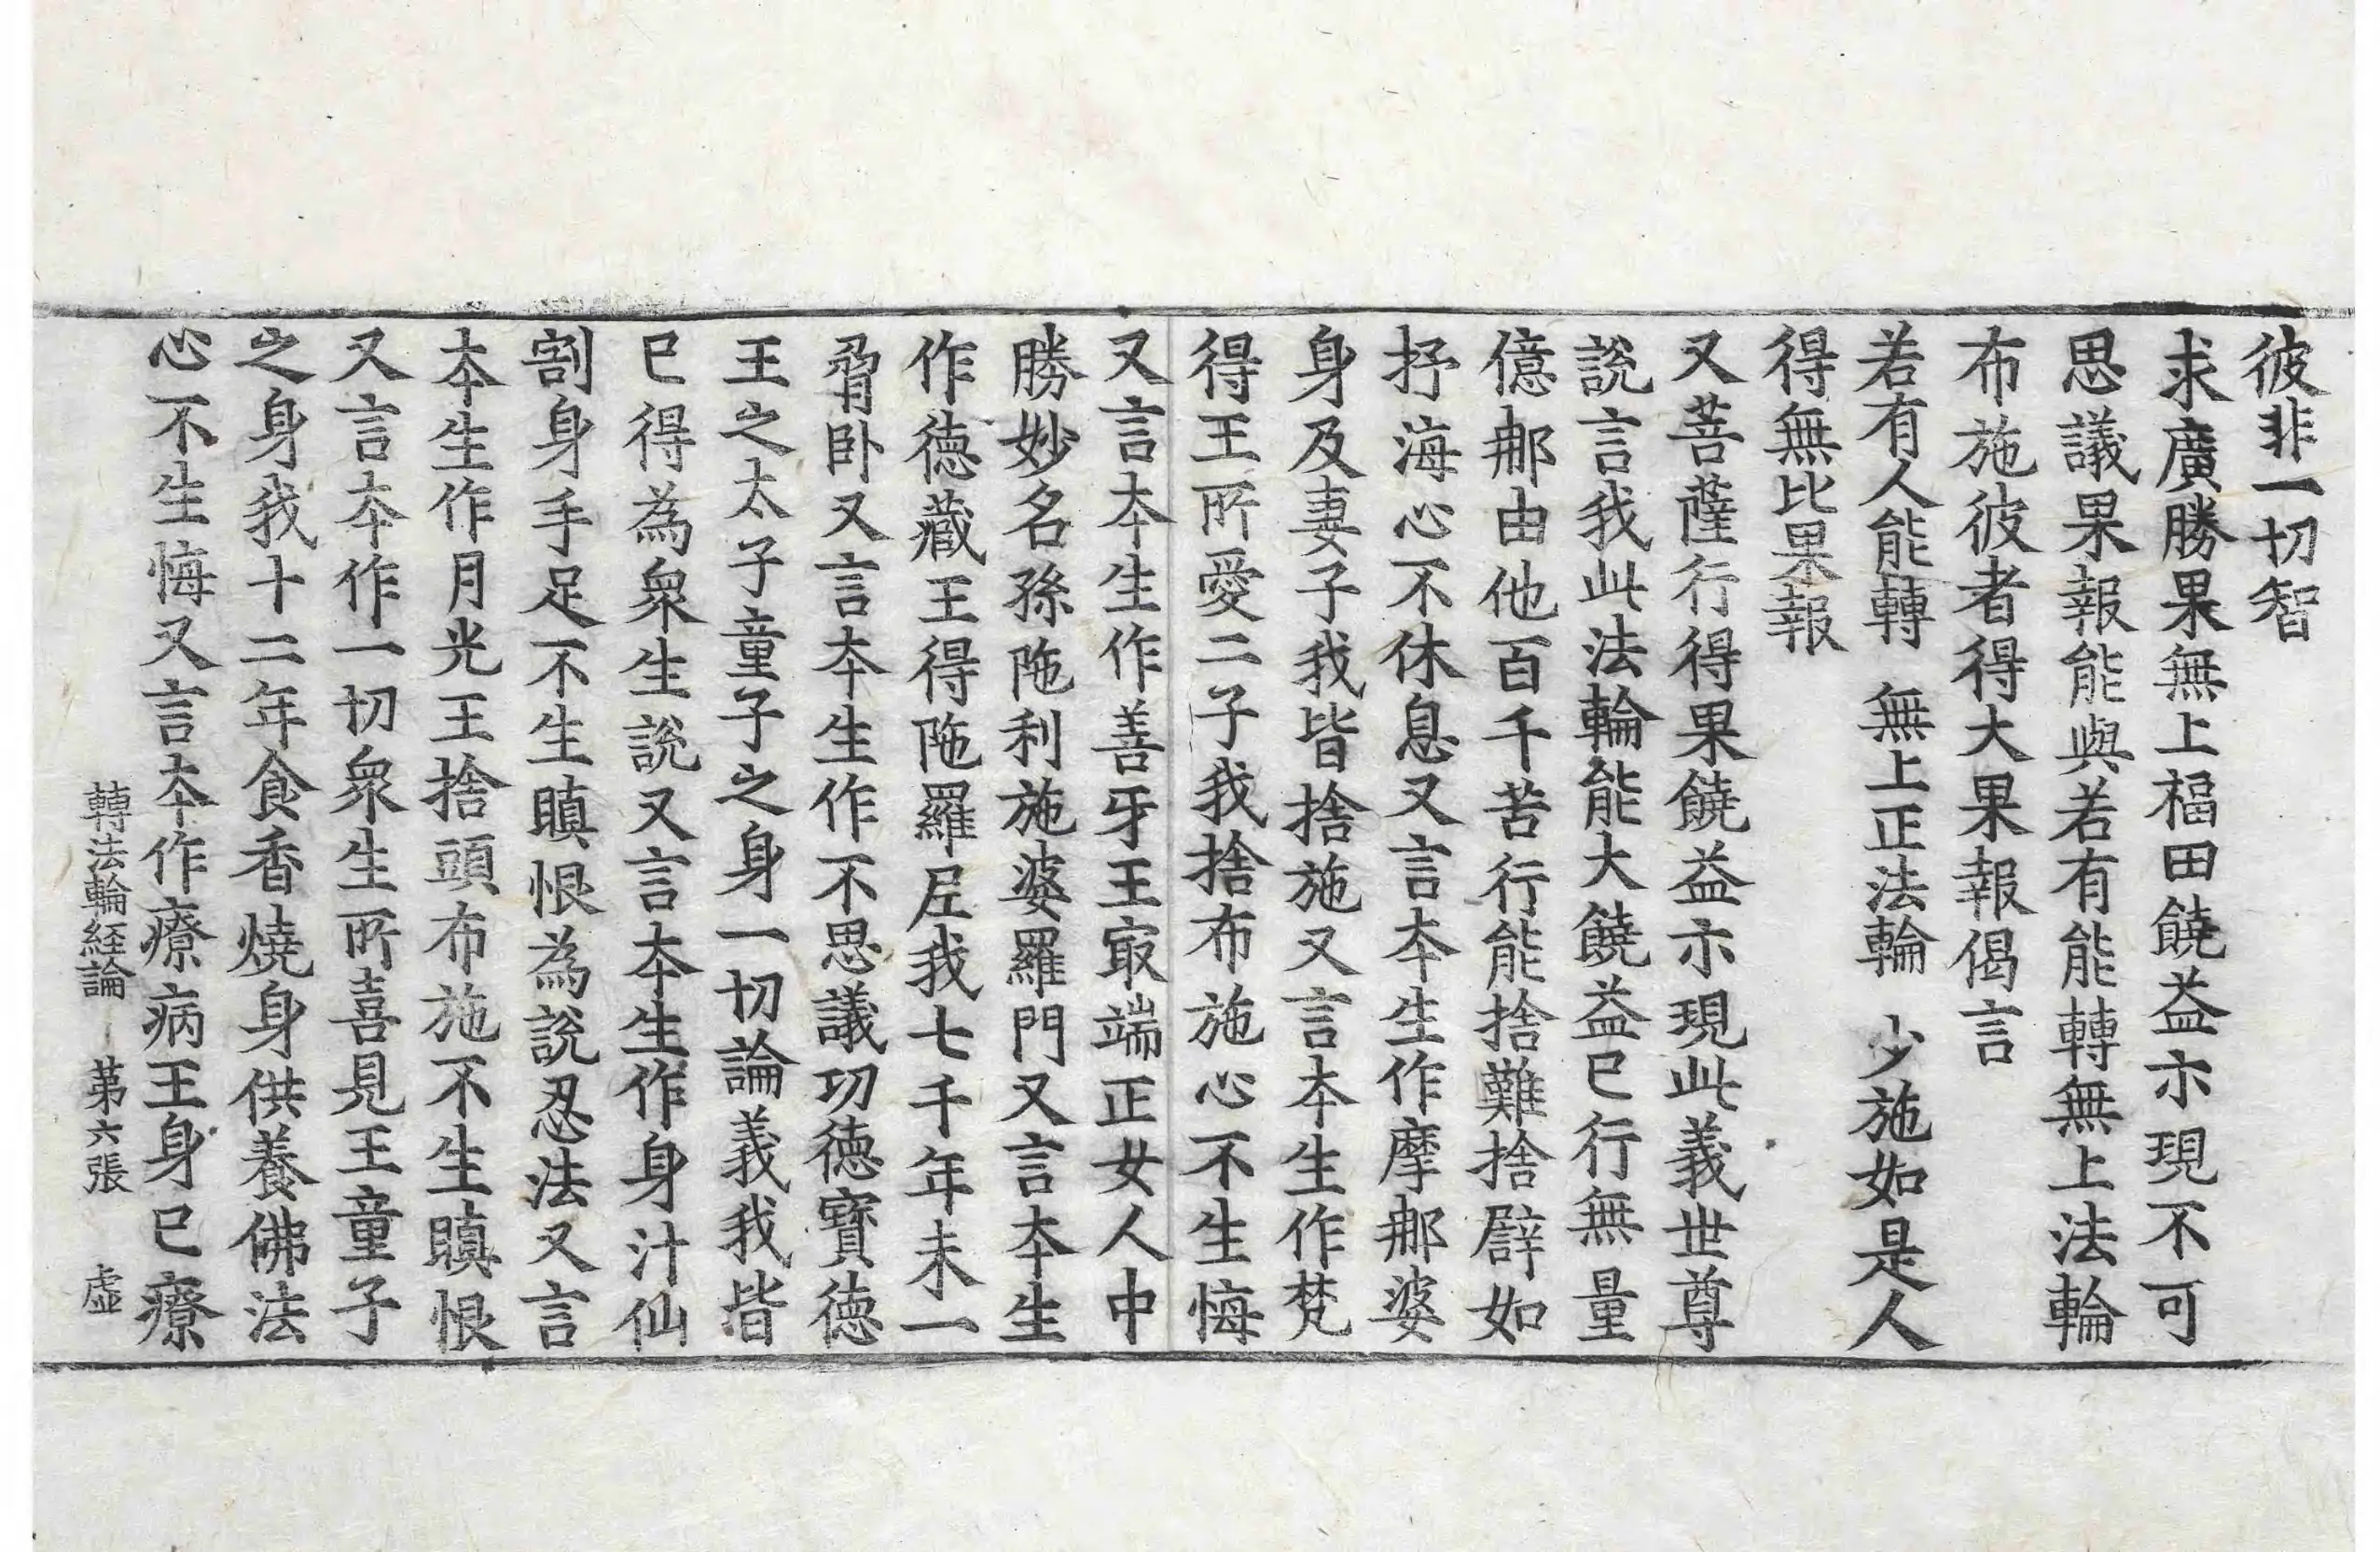 彼非一切智
求廣勝果無上福田饒益示現不可
思議果報能與若有能轉無上法輪
布施彼者得大果報偈言
若有人能轉　無上正法輪　少施如是人
得無比果報
又菩薩行得果饒益示現此義世尊
說言我此法輪能大饒益已行無量
億那由他百千苦行能捨難捨譬如
抒海心不休息又言夲生作摩那婆
身及妻子我皆捨施又言夲生作梵
得王所愛二子我捨布施心不生悔
又言夲生作善牙王㝡端正女人中
勝妙名孫陁利施婆羅門又言夲生
作德藏王得陁羅尼我七千年未一
脅卧又言夲生作不思議功德寶德
王之太子童子之身一切論義我皆
已得為衆生說又言夲生作身汁仙
割身手足不生瞋恨為說忍法又言
夲生作月光王捨頭布施不生瞋恨
又言夲作一切衆生所喜見王童子
之身我十二年食香燒身供養佛法
心不生悔又言夲作療病王身已療
轉法輪経論　第六張　虛